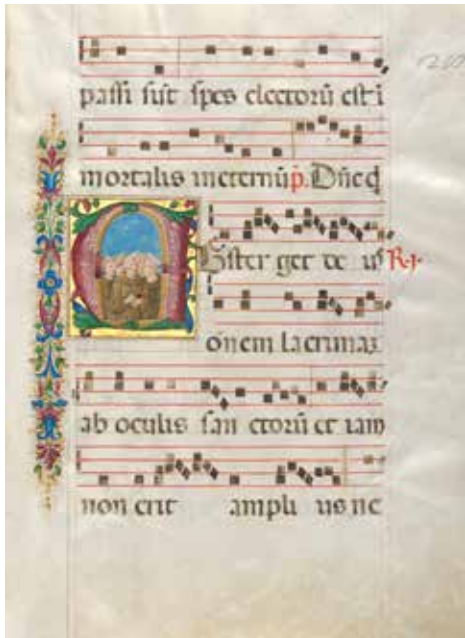 passi sūt spes electorū est ī
mortalis in eternū p. Dn̄e q
Abster get de us R.
on̄em lacrimaꝫ
ab oculis san ctorū et iam
non erit ampli us ne